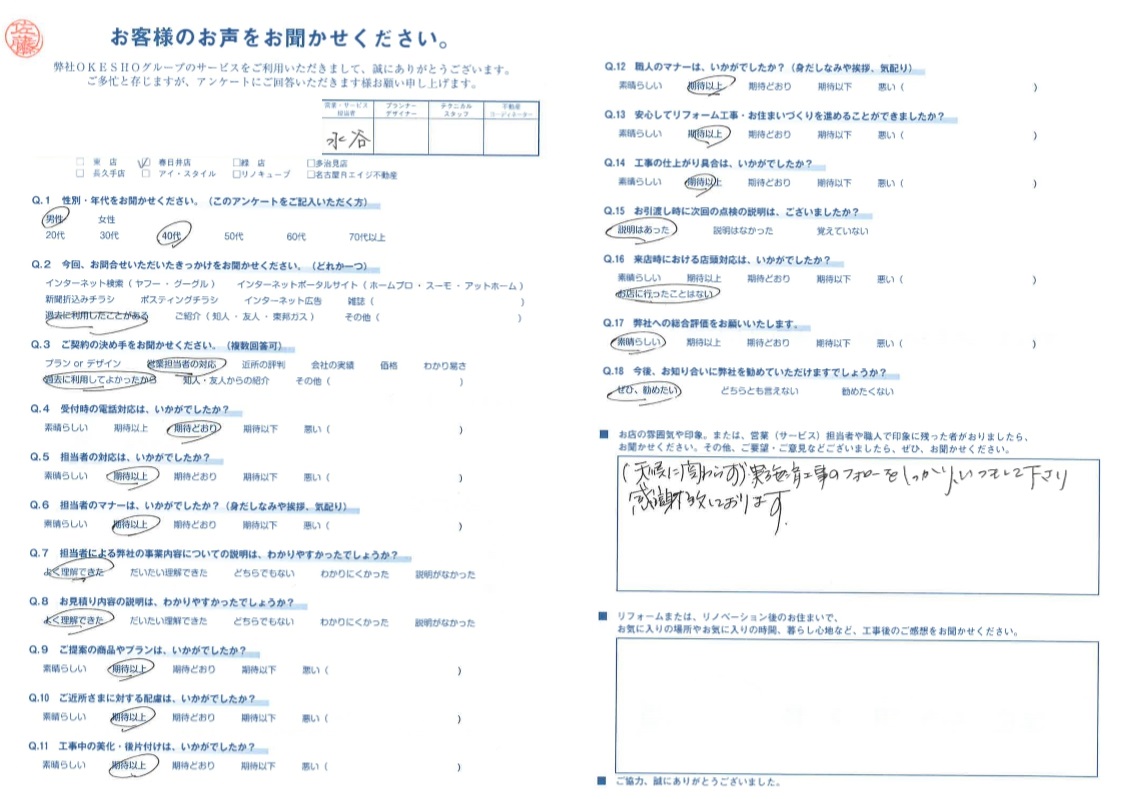 佐藤
お客様のお声をお聞かせください。
弊社OKESHOグループのサービスをご利用いただきまして、誠にありがとうございます。
ご多忙と存じますが、アンケートにご回答いただきます様お願い申し上げます。
営業・サービス担当者 プランナーデザイナー テクニカルスタッフ 不動産コーディネーター
水谷
□ 東 店 ☑ 春日井店 □緑 店 □多治見店
□ 長久手店 □ アイ・スタイル □リノキューブ □名古屋Rエイジ不動産
Q.1 性別・年代をお聞かせください。(このアンケートをご記入いただく方)
男性 女性
20代 30代 40代 50代 60代 70代以上
Q.2 今回、お問合せいただいたきっかけをお聞かせください。(どれか一つ)
インターネット検索(ヤフー・グーグル) インターネットポータルサイト(ホームプロ・スーモ・アットホーム)
新聞折込みチラシ ポスティングチラシ インターネット広告 雑誌( )
過去に利用したことがある ご紹介(知人・友人・東邦ガス) その他( )
Q.3 ご契約の決め手をお聞かせください。(複数回答可)
プラン or デザイン 営業担当者の対応 近所の評判 会社の実績 価格 わかり易さ
過去に利用してよかったから 知人・友人からの紹介 その他( )
Q.4 受付時の電話対応は、いかがでしたか?
素晴らしい 期待以上 期待どおり 期待以下 悪い( )
Q.5 担当者の対応は、いかがでしたか?
素晴らしい 期待以上 期待どおり 期待以下 悪い( )
Q.6 担当者のマナーは、いかがでしたか?(身だしなみや挨拶、気配り)
素晴らしい 期待以上 期待どおり 期待以下 悪い( )
Q.7 担当者による弊社の事業内容についての説明は、わかりやすかったでしょうか?
よく理解できた だいたい理解できた どちらでもない わかりにくかった 説明がなかった
Q.8 お見積り内容の説明は、わかりやすかったでしょうか?
よく理解できた だいたい理解できた どちらでもない わかりにくかった 説明がなかった
Q.9 ご提案の商品やプランは、いかがでしたか?
素晴らしい 期待以上 期待どおり 期待以下 悪い( )
Q.10 ご近所さまに対する配慮は、いかがでしたか?
素晴らしい 期待以上 期待どおり 期待以下 悪い( )
Q.11 工事中の美化・後片付けは、いかがでしたか?
素晴らしい 期待以上 期待どおり 期待以下 悪い( )
Q.12 職人のマナーは、いかがでしたか?(身だしなみや挨拶、気配り)
素晴らしい 期待以上 期待どおり 期待以下 悪い( )
Q.13 安心してリフォーム工事・お住まいづくりを進めることができましたか?
素晴らしい 期待以上 期待どおり 期待以下 悪い( )
Q.14 工事の仕上がり具合は、いかがでしたか?
素晴らしい 期待以上 期待どおり 期待以下 悪い( )
Q.15 お引渡し時に次回の点検の説明は、ございましたか?
説明はあった 説明はなかった 覚えていない
Q.16 来店時における店頭対応は、いかがでしたか?
素晴らしい 期待以上 期待どおり 期待以下 悪い( )
お店に行ったことはない
Q.17 弊社への総合評価をお願いいたします。
素晴らしい 期待以上 期待どおり 期待以下 悪い( )
Q.18 今後、お知り合いに弊社を勧めていただけますでしょうか?
ぜひ、勧めたい どちらとも言えない 勧めたくない
■ お店の雰囲気や印象。または、営業(サービス)担当者や職人で印象に残った者がおりましたら、
お聞かせください。その他、ご要望・ご意見などございましたら、ぜひ、お聞かせください。
(天候に関わらず)実施 工事のフォローをしっかり、いつもして下さり
感謝 しております。
■ リフォームまたは、リノベーション後のお住まいで、
お気に入りの場所やお気に入りの時間、暮らし心地など、工事後のご感想をお聞かせください。
■ ご協力、誠にありがとうございました。